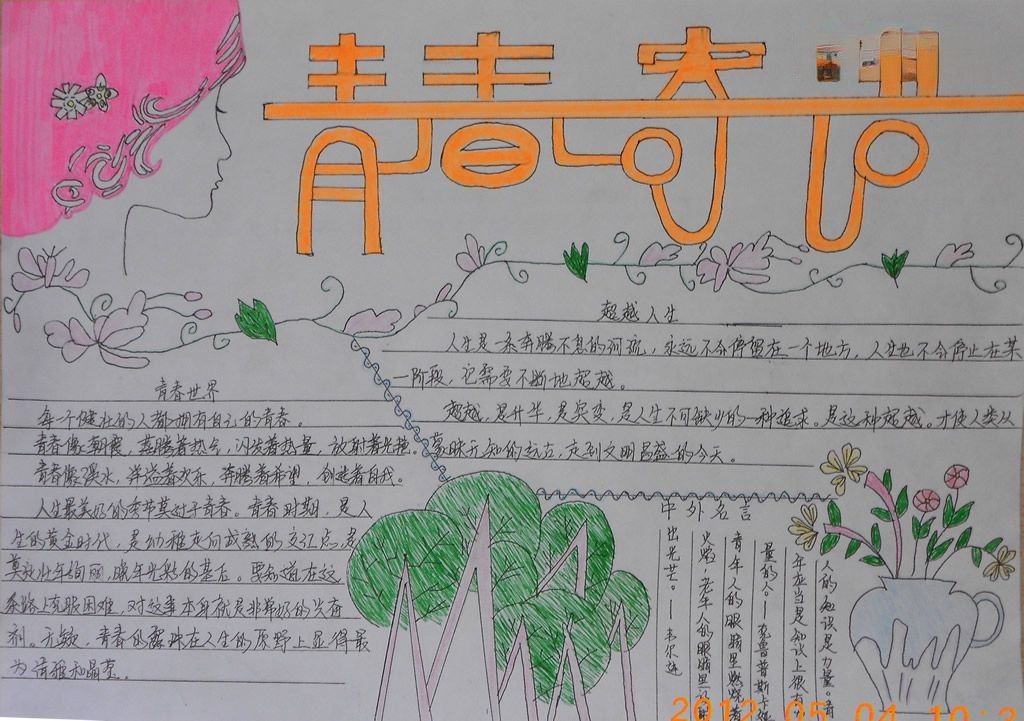 青春寄语
青春世界
每一个健壮的人都拥有自己的青春。
青春像朝霞，蒸腾着热气，闪发着热量，放射着光艳。
青春像溪水，洋溢着欢乐，奔腾着希望，创造着自我。
人生最美好的季节莫过于青春。青春时期，是人
生的黄金时代，是幼稚走向成熟的交汇点，是
莫说壮年绚丽，晚年光彩的基石。要知道在这
条路上克服困难，对这事本身就是非常好的兴奋
剂。无疑，青春的露珠在人生的原野上显得最
为清雅和晶莹。
超越人生
人生是一条奔腾不息的河流，永远不会停留在一个地方，人生也不会停止在某
一阶段，它需要不断地超越。
超越，是升华，是突变，是人生不可缺少的一种追求。是这种超越，才使人类从
蒙昧无知的远古，走到文明昌盛的今天。
中外名言
人的知识是力量。青
年应当是知识上很有
量的人。——克鲁普斯卡娅
青年人的眼睛里燃烧着
火焰，老年人的眼睛里
出光芒。——韦尔连
2012.05.04 10: